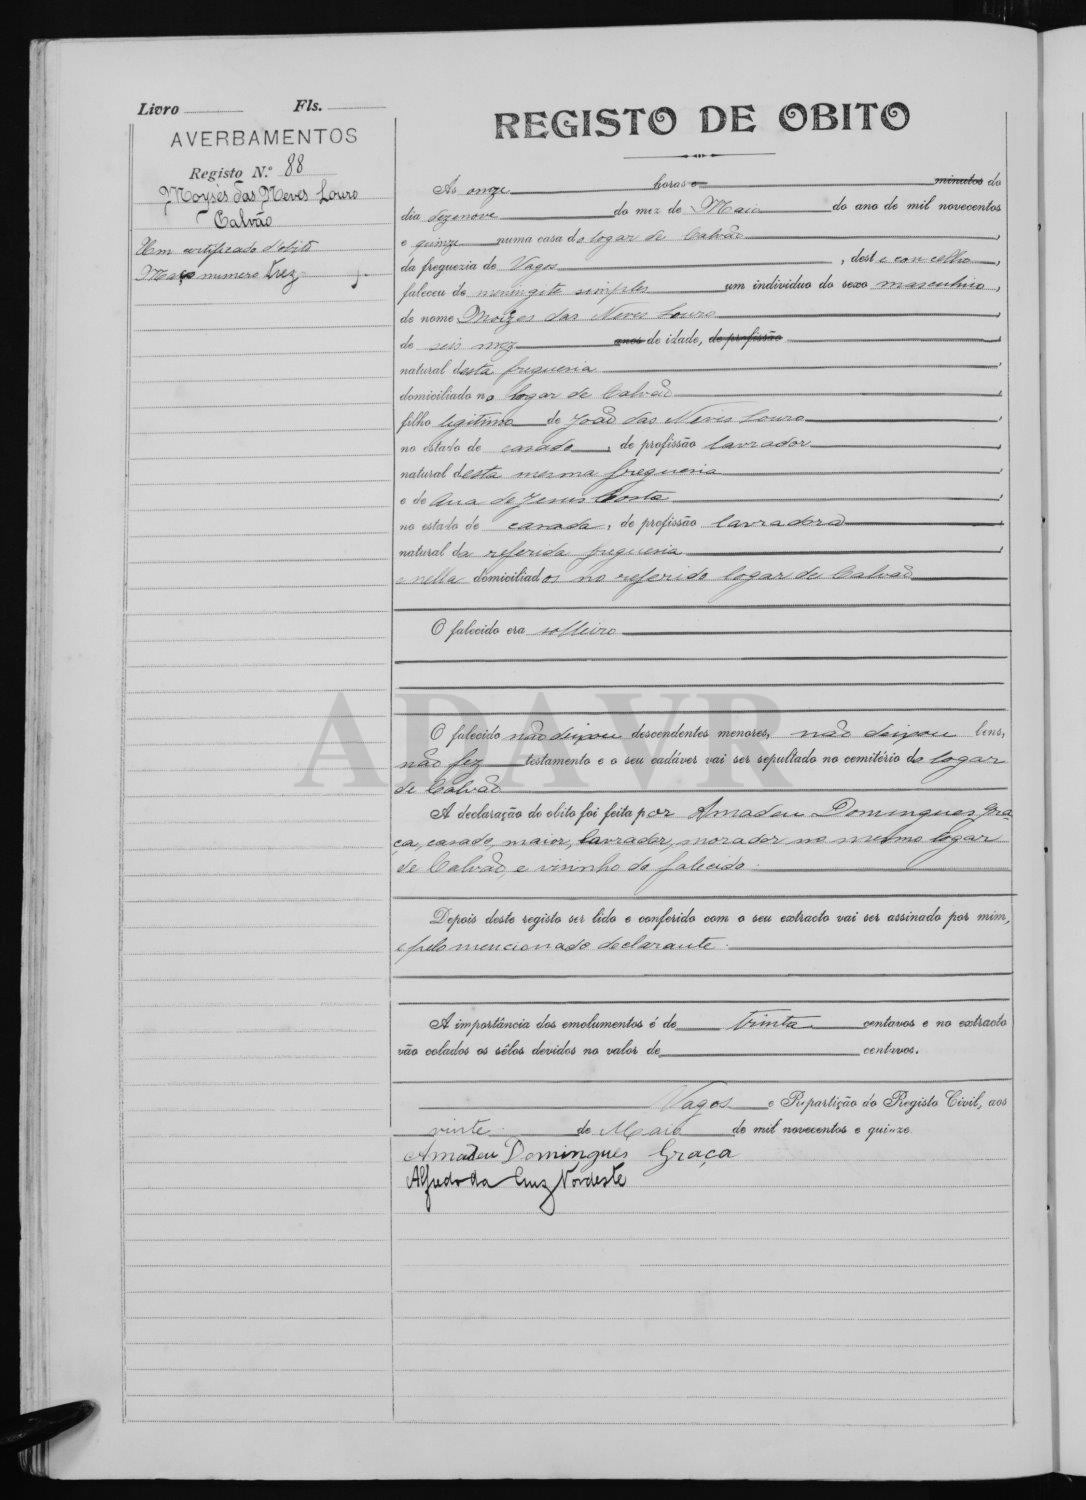 Livro Fls.
AVERBAMENTOS
Registo N.º 88
Moysés das Neves Louro
Calvão
Um certificado d'obito
Maço numero trez
REGISTO DE OBITO
Às onze horas e minutos do
dia dezenove do mez de Maio do ano de mil novecentos
e quinze numa casa do logar de Calvão,
da freguezia de Vagos, deste concelho,
faleceu de meningite simples um individuo do sexo masculino,
de nome Moizes das Neves Louro,
de seis mez anos de idade, de profissão
natural desta freguesia,
domiciliado no logar de Calvão,
filho legitimo de João das Neves Louro,
no estado de casado, de profissão lavrador,
natural desta mesma freguesia,
e de Ana de Jesus Costa,
no estado de casada, de profissão lavradora,
natural da referida freguesia,
e nella domiciliados no referido logar de Calvão
O falecido era solteiro
ADAVR
O falecido não deixou descendentes menores, não deixou bens,
não fez testamento e o seu cadáver vai ser sepultado no cemitério do logar
de Calvão
A declaração do obito foi feita por Amadeu Domingues Gra-
ça, casado, maior, lavrador, morador no mesmo logar
de Calvão, e visinho do falecido.
Depois deste registo ser lido e conferido com o seu extracto vai ser assinado por mim,
e pelo mencionado declarante.
A importância dos emolumentos é de trinta centavos e no extracto
vão colados os sêlos devidos no valor de centavos.
Vagos e Repartição do Registo Civil, aos
vinte de Maio de mil novecentos e quinze.
Amadeu Domingues Graça
Alfredo da Cruz Nordeste